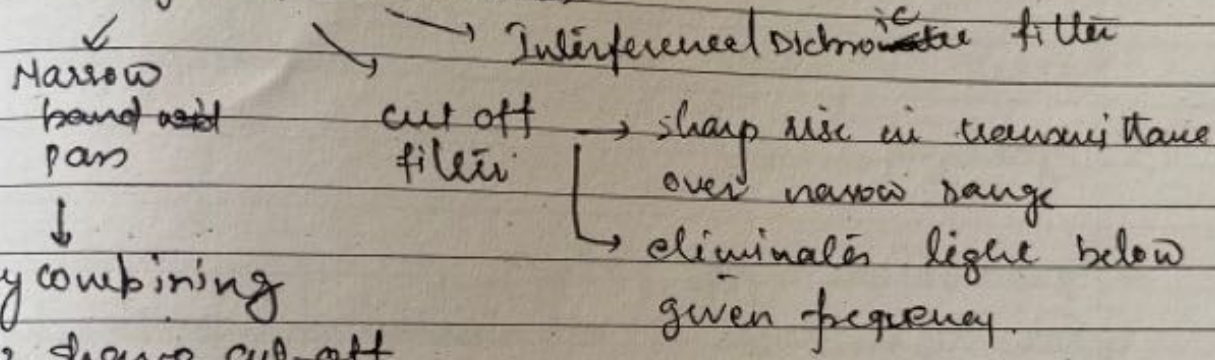 Interferencel Dichroic filter
Narrow
band
pass
cut off
filter
sharp rise in transmittance
over narrow range
eliminates light below
given frequency.
y combining
sharp cut-off